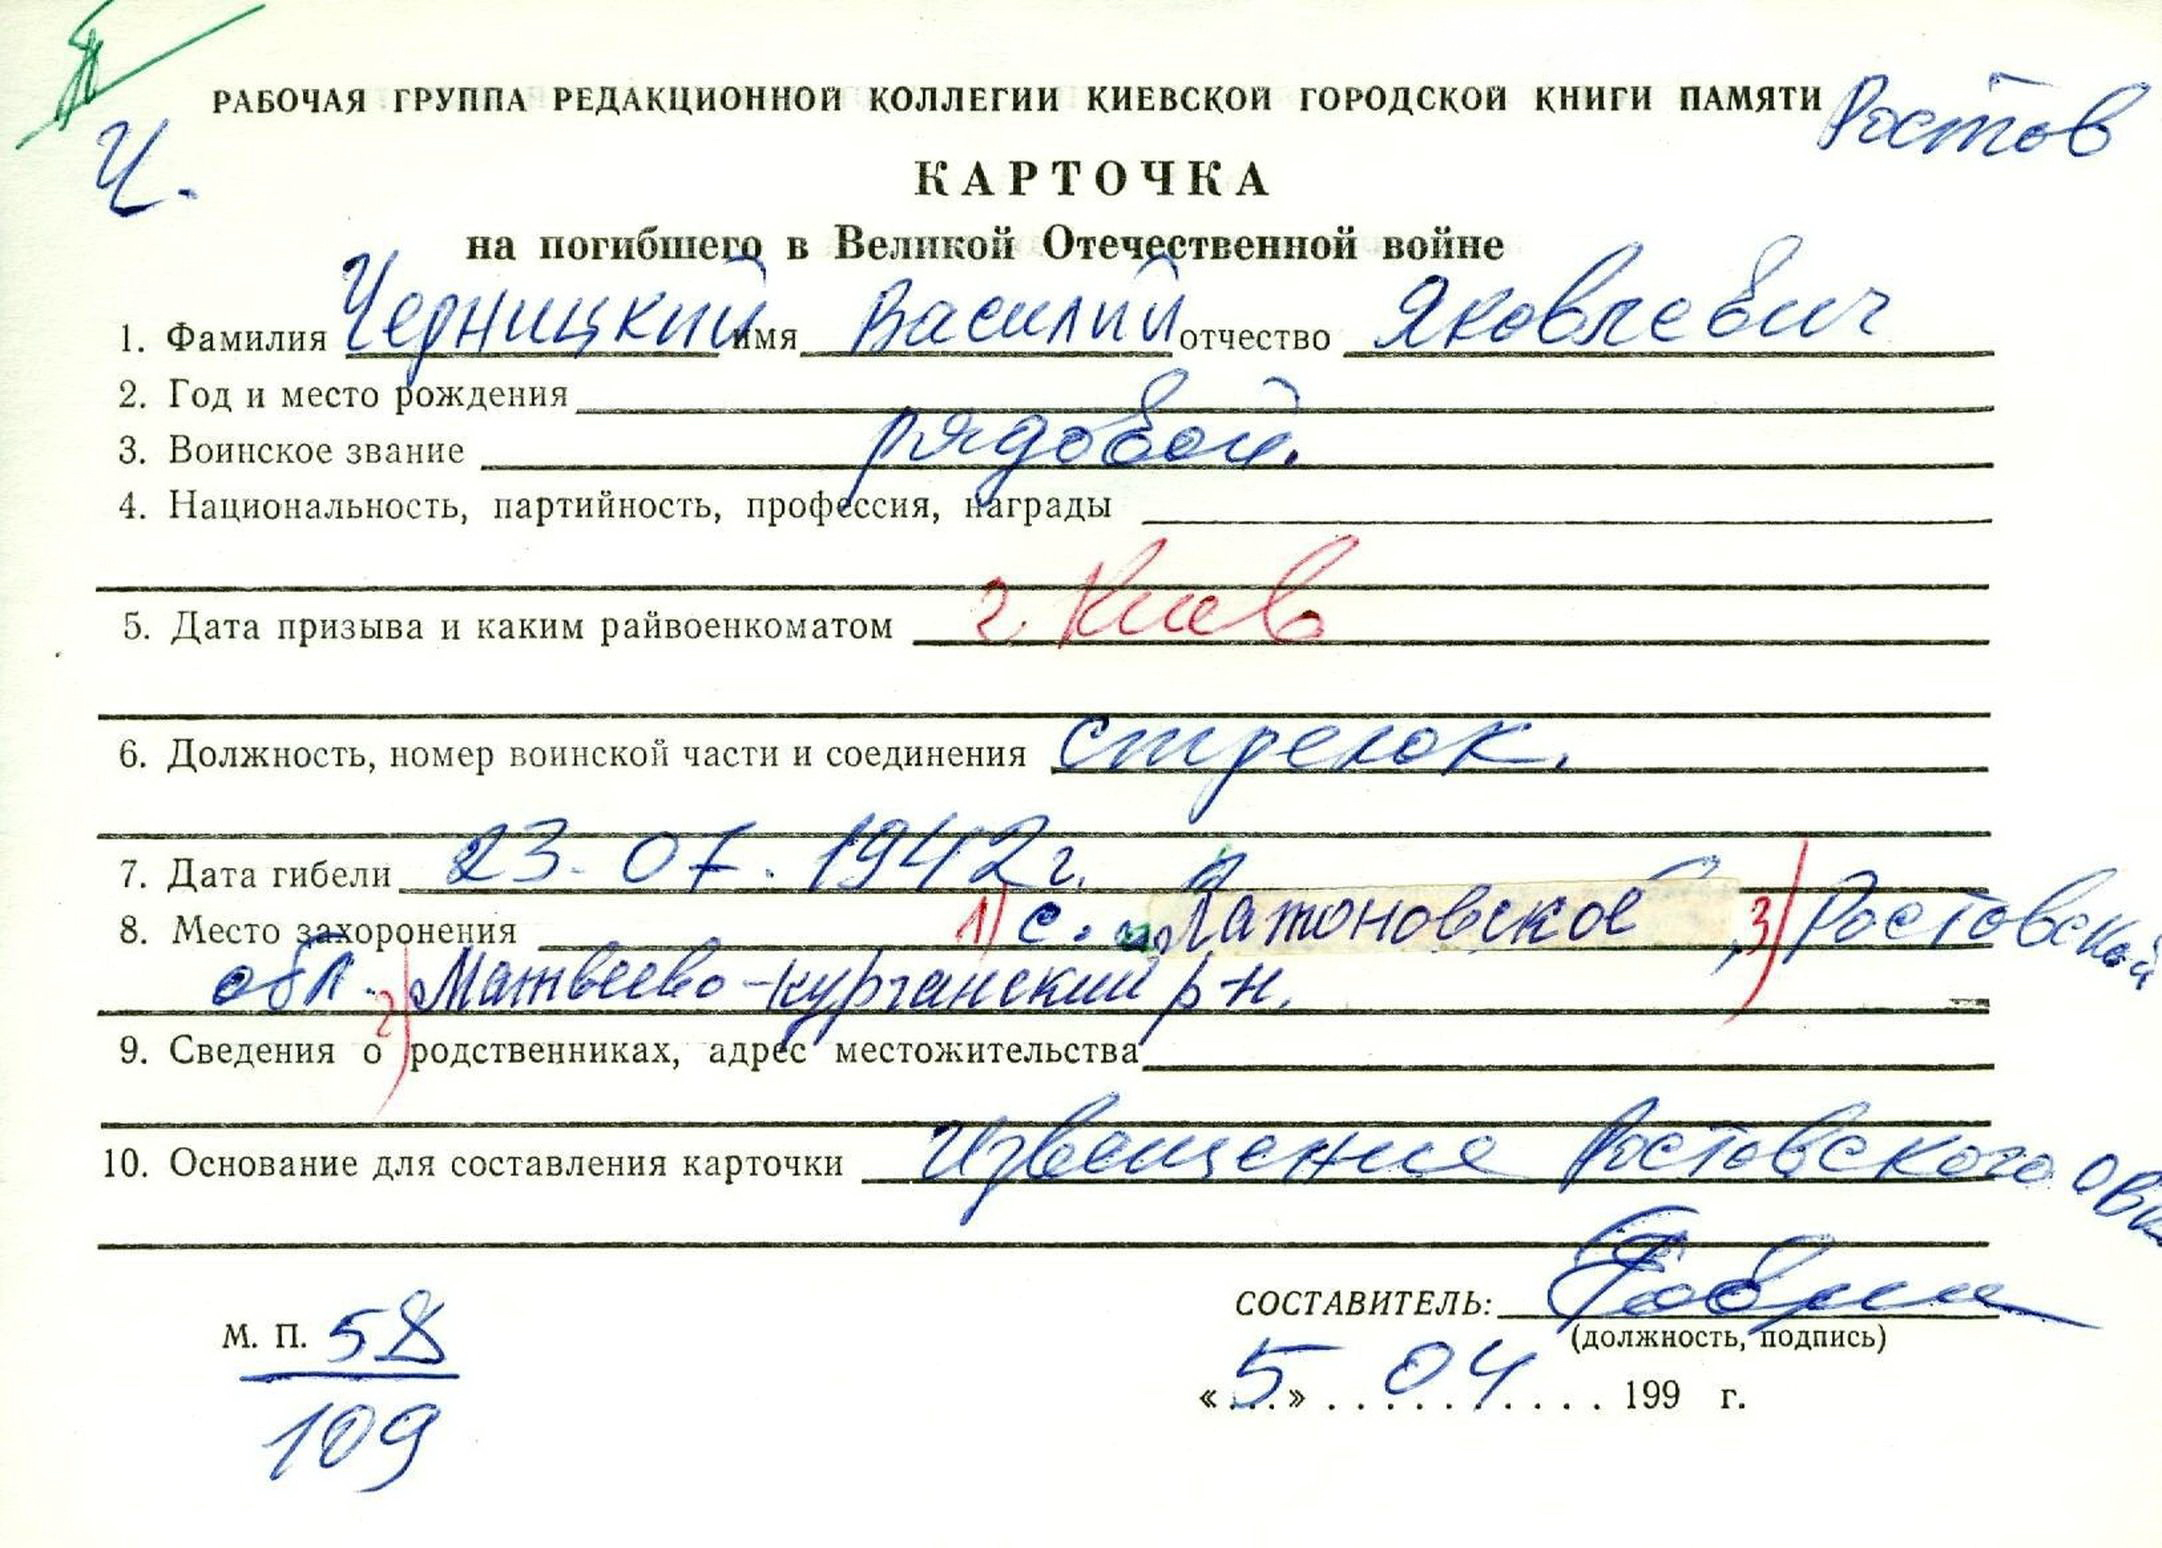 РАБОЧАЯ ГРУППА РЕДАКЦИОННОЙ КОЛЛЕГИИ КИЕВСКОЙ ГОРОДСКОЙ КНИГИ ПАМЯТИ Ростов
Ч.
КАРТОЧКА
на погибшего в Великой Отечественной войне
1. Фамилия Черницкий имя Василий отчество Яковлевич
2. Год и место рождения
3. Воинское звание рядовой.
4. Национальность, партийность, профессия, награды
5. Дата призыва и каким райвоенкоматом г. Киев
6. Должность, номер воинской части и соединения стрелок.
7. Дата гибели 23.07.1942 г.
8. Место захоронения 1) с. Латоновское, 3) Ростовской
обл. 2) Матвеево-курганский р-н.
9. Сведения о родственниках, адрес местожительства
10. Основание для составления карточки извещение Ростовского
СОСТАВИТЕЛЬ:
М. П. 58
(должность, подпись)
109
«5» 04 199 г.